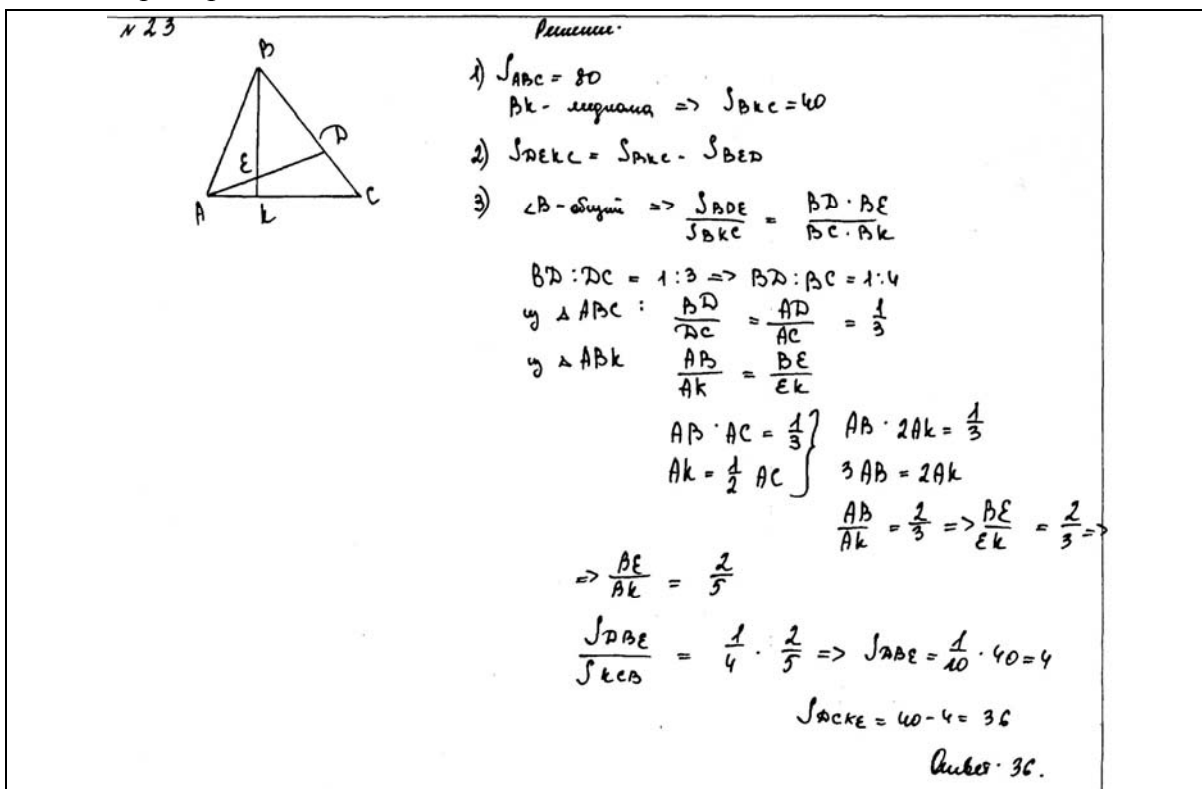 N 23
Решение.
B
E
D
A
K
C
1) S_ABC = 80
BK - медиана => S_BKC = 40
2) S_DEKC = S_BKC - S_BED
3) ∠B - общий => S_BDE / S_BKC = BD · BE / BC · BK
BD : DC = 1 : 3 => BD : BC = 1 : 4
из △ ABC : BD / DC = AD / AC = 1/3
из △ ABK AB / AK = BE / EK
AB · AC = 1/3 } AB · 2AK = 1/3
AK = 1/2 AC } 3AB = 2AK
AB / AK = 2/3 => BE / EK = 2/3 =>
=> BE / BK = 2/5
S_DBE / S_KCB = 1/4 · 2/5 => S_DBE = 1/10 · 40 = 4
S_DCKE = 40 - 4 = 36
Ответ · 36.